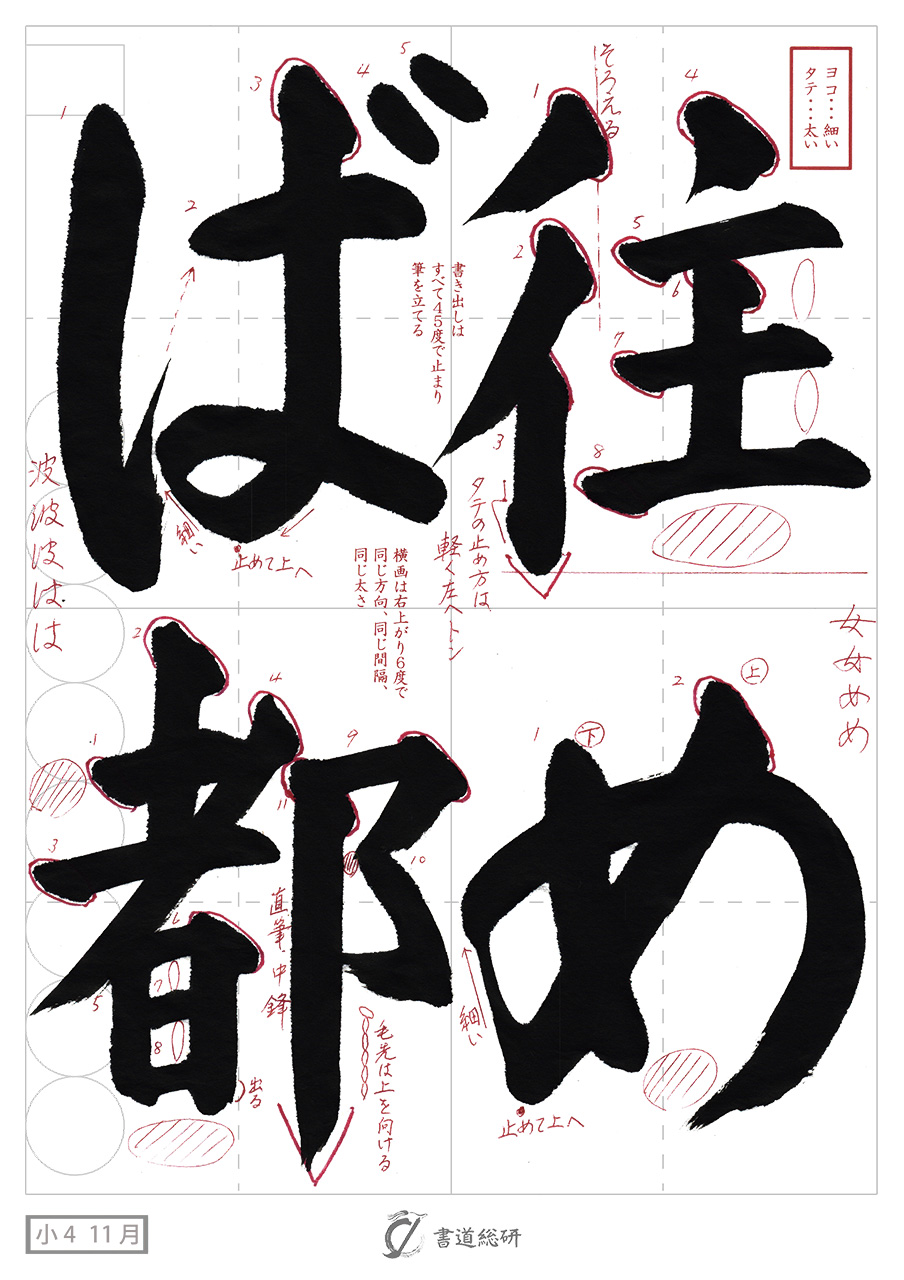 住めば都
ヨコ・・・細い
タテ・・・太い
そろえる
1
2
3
4
5
6
7
8
書き出しは
すべて45度で止まり
筆を立てる
タテの止め方は
軽く左へトン
女女めめ
上
下
1
2
細い
止めて上へ
1
2
3
4
5
細い
止めて上へ
波波波はは
横画は右上がり6度で
同じ方向、同じ間隔、
同じ太さ
1
2
3
4
5
6
7
8
9
10
11
直筆・中鋒
毛先は上を向ける
出る
小4 11月
書道総研